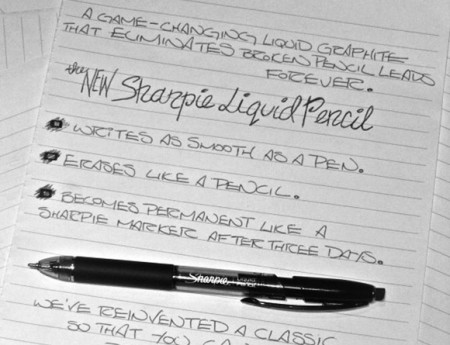 A GAME-CHANGING LIQUID GRAPHITE
THAT ELIMINATES BROKEN PENCIL LEADS
FOREVER.
the NEW Sharpie Liquid Pencil
WRITES AS SMOOTH AS A PEN.
ERASES LIKE A PENCIL.
BECOMES PERMANENT LIKE A
SHARPIE MARKER AFTER THREE DAYS.
Sharpie LIQUID PENCIL
WE'VE REINVENTED A CLASSIC
SO THAT YOU CAN